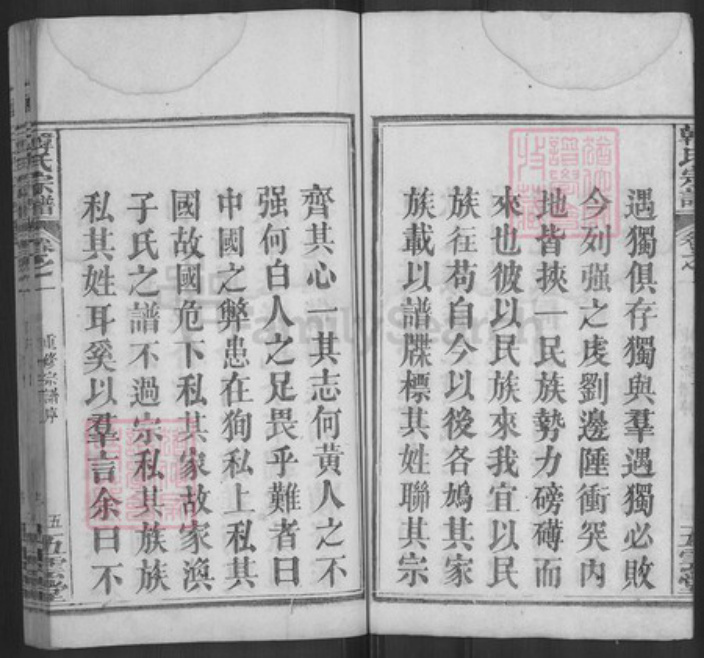 遇獨俱存獨與羣遇獨必敗
今列强之虔劉邊陲衝突內
地皆挾一民族勢力磅礴而
來也彼以民族來我宜以民
族往苟自今以後各鳩其家
族載以譜牒標其姓聯其宗
韓氏宗譜
卷之一
重修宗譜序
五
五雲堂
齊其心一其志何黃人之不
强何白人之足畏乎難者曰
中國之弊患在狥私上私其
國故國危下私其家故家渙
子氏之譜不過宗私其族族
私其姓耳奚以羣言余曰不
韓氏宗譜
卷之一
五雲堂
FamilySearch